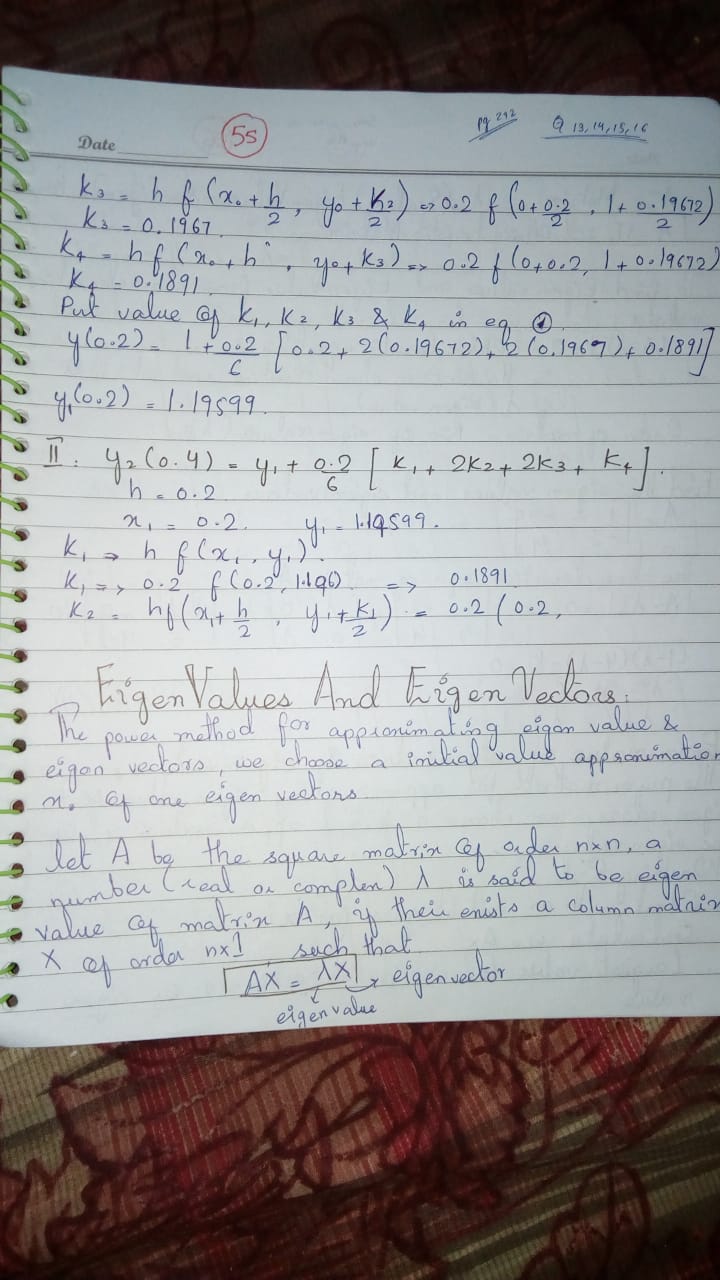 pg 292 Q 13,14,15,16
Date
55
K3 = h f (x0 + h/2, y0 + K2/2) => 0.2 f (0 + 0.2/2, 1 + 0.19672/2)
K3 = 0.1967
K4 = h f (x0 + h, y0 + K3) => 0.2 f (0+0.2, 1 + 0.19672)
K4 = 0.1891
Put value of K1, K2, K3 & K4 in eq ①.
y(0.2) = 1 + 0.2/6 [0.2 + 2(0.19672) + 2(0.1967) + 0.1891]
y1(0.2) = 1.19599.
II. y2(0.4) = y1 + 0.2/6 [K1 + 2K2 + 2K3 + K4].
h = 0.2
x1 = 0.2. y1 = 1.19599.
K1 => h f (x1, y1).
K1 => 0.2 f (0.2, 1.196) => 0.1891
K2 = hf(x1 + h/2, y1 + K1/2) = 0.2 (0.2,
Eigen Values And Eigen Vectors.
The power method for approximating eigen value &
eigen vectors, we choose a initial value approximation
x0 of one eigen vectors
let A be the square matrix of order nxn, a
number (real or complex) λ is said to be eigen
value of matrix A, if their exists a column matrix
X of order nx1 such that
AX = λX eigen vector
eigen value